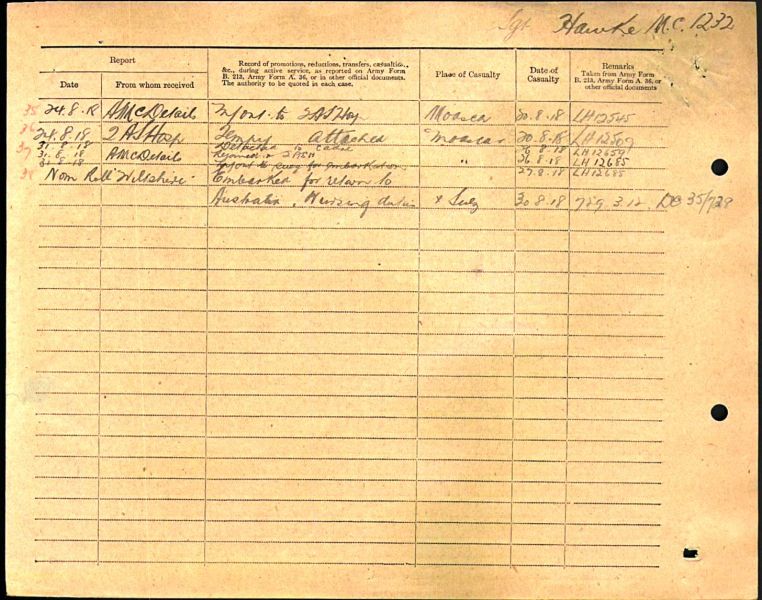 Sgt Hawke M.C. 1232
Report
Date
From whom received
Record of promotions, reductions, transfers, casualties, &c., during active service, as reported on Army Form B. 213, Army Form A. 36, or in other official documents. The authority to be quoted in each case.
Place of Casualty
Date of Casualty
Remarks
Taken from Army Form B. 213, Army Form A. 36, or other official documents
35 24.8.18 AMC Detail to 2 A S Hosp Moascar 20.8.18 LH12545
24.8.18 2 A S Hosp Tempy Attached Moascar 20.8.18 LH12507
31.8.18 Detached to 26.8.18 LH12659
37 31.8.18 AMC Detail Rejoined 26.8.18 LH12685
31.8.18 to Suez for embarkation " 29.8.18 LH12685
38 Nom Roll "Wiltshire" Embarked for return to
Australia, Nursing duties Suez 30.8.18 729.3.12. DC 35/728